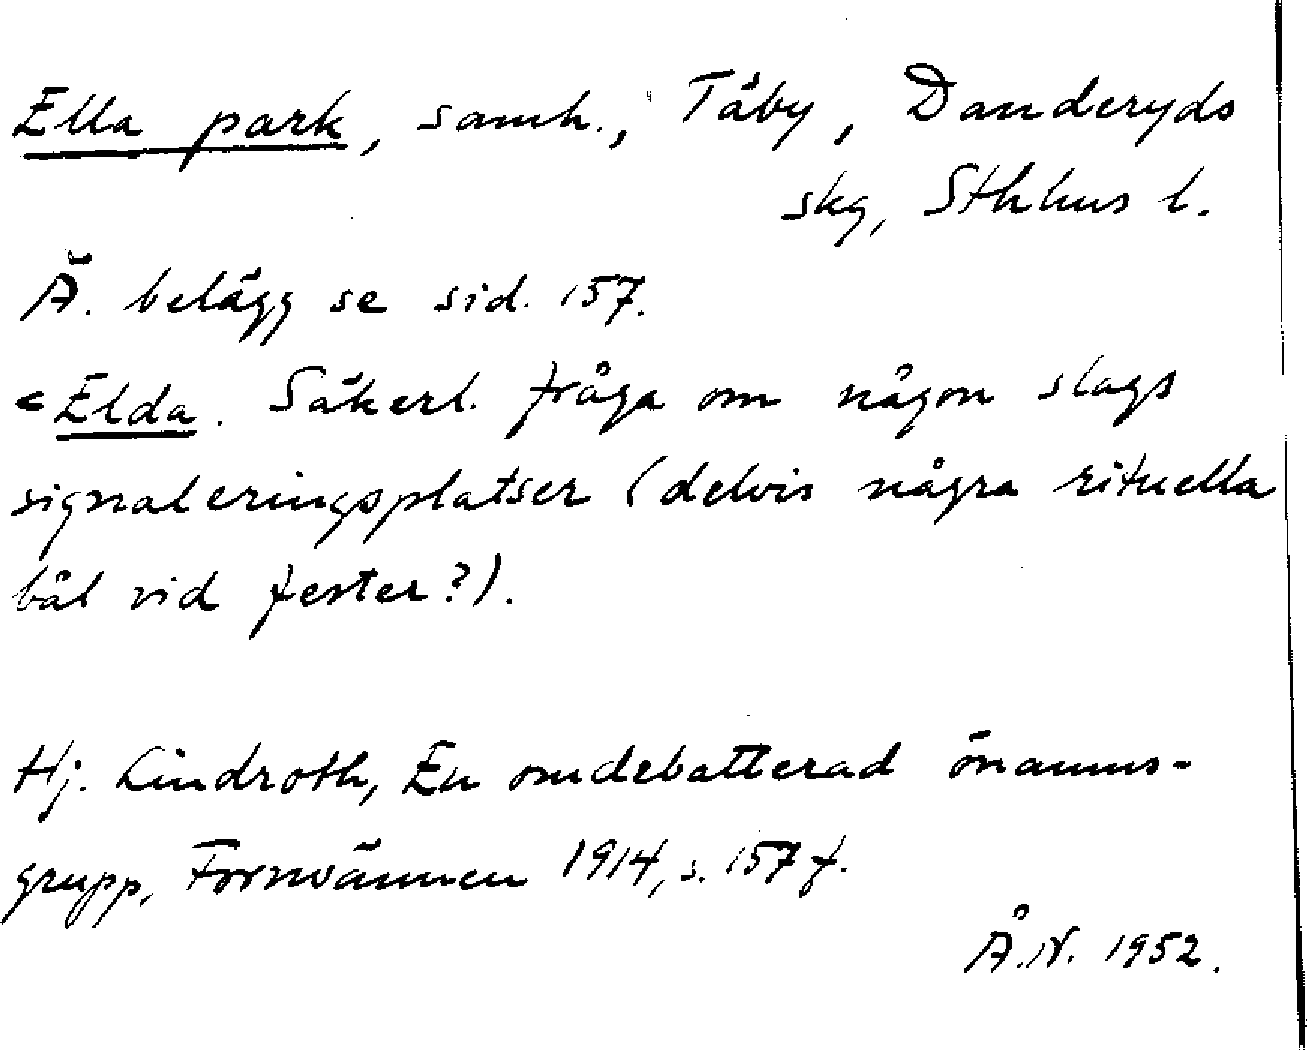 Ella park, samh., Täby, Danderyds
skg, Sthhus l.
Ä. belägg se sid. 157.
< Elda. Säkerl. fråga om någon slags
signaleringsplatser (delvis några rituella
bål vid fester?).
Hj. Lindroth, En omdebatterad önamns-
grupp, Fornvännen 1914, s. 157 f.
Å.N. 1952.